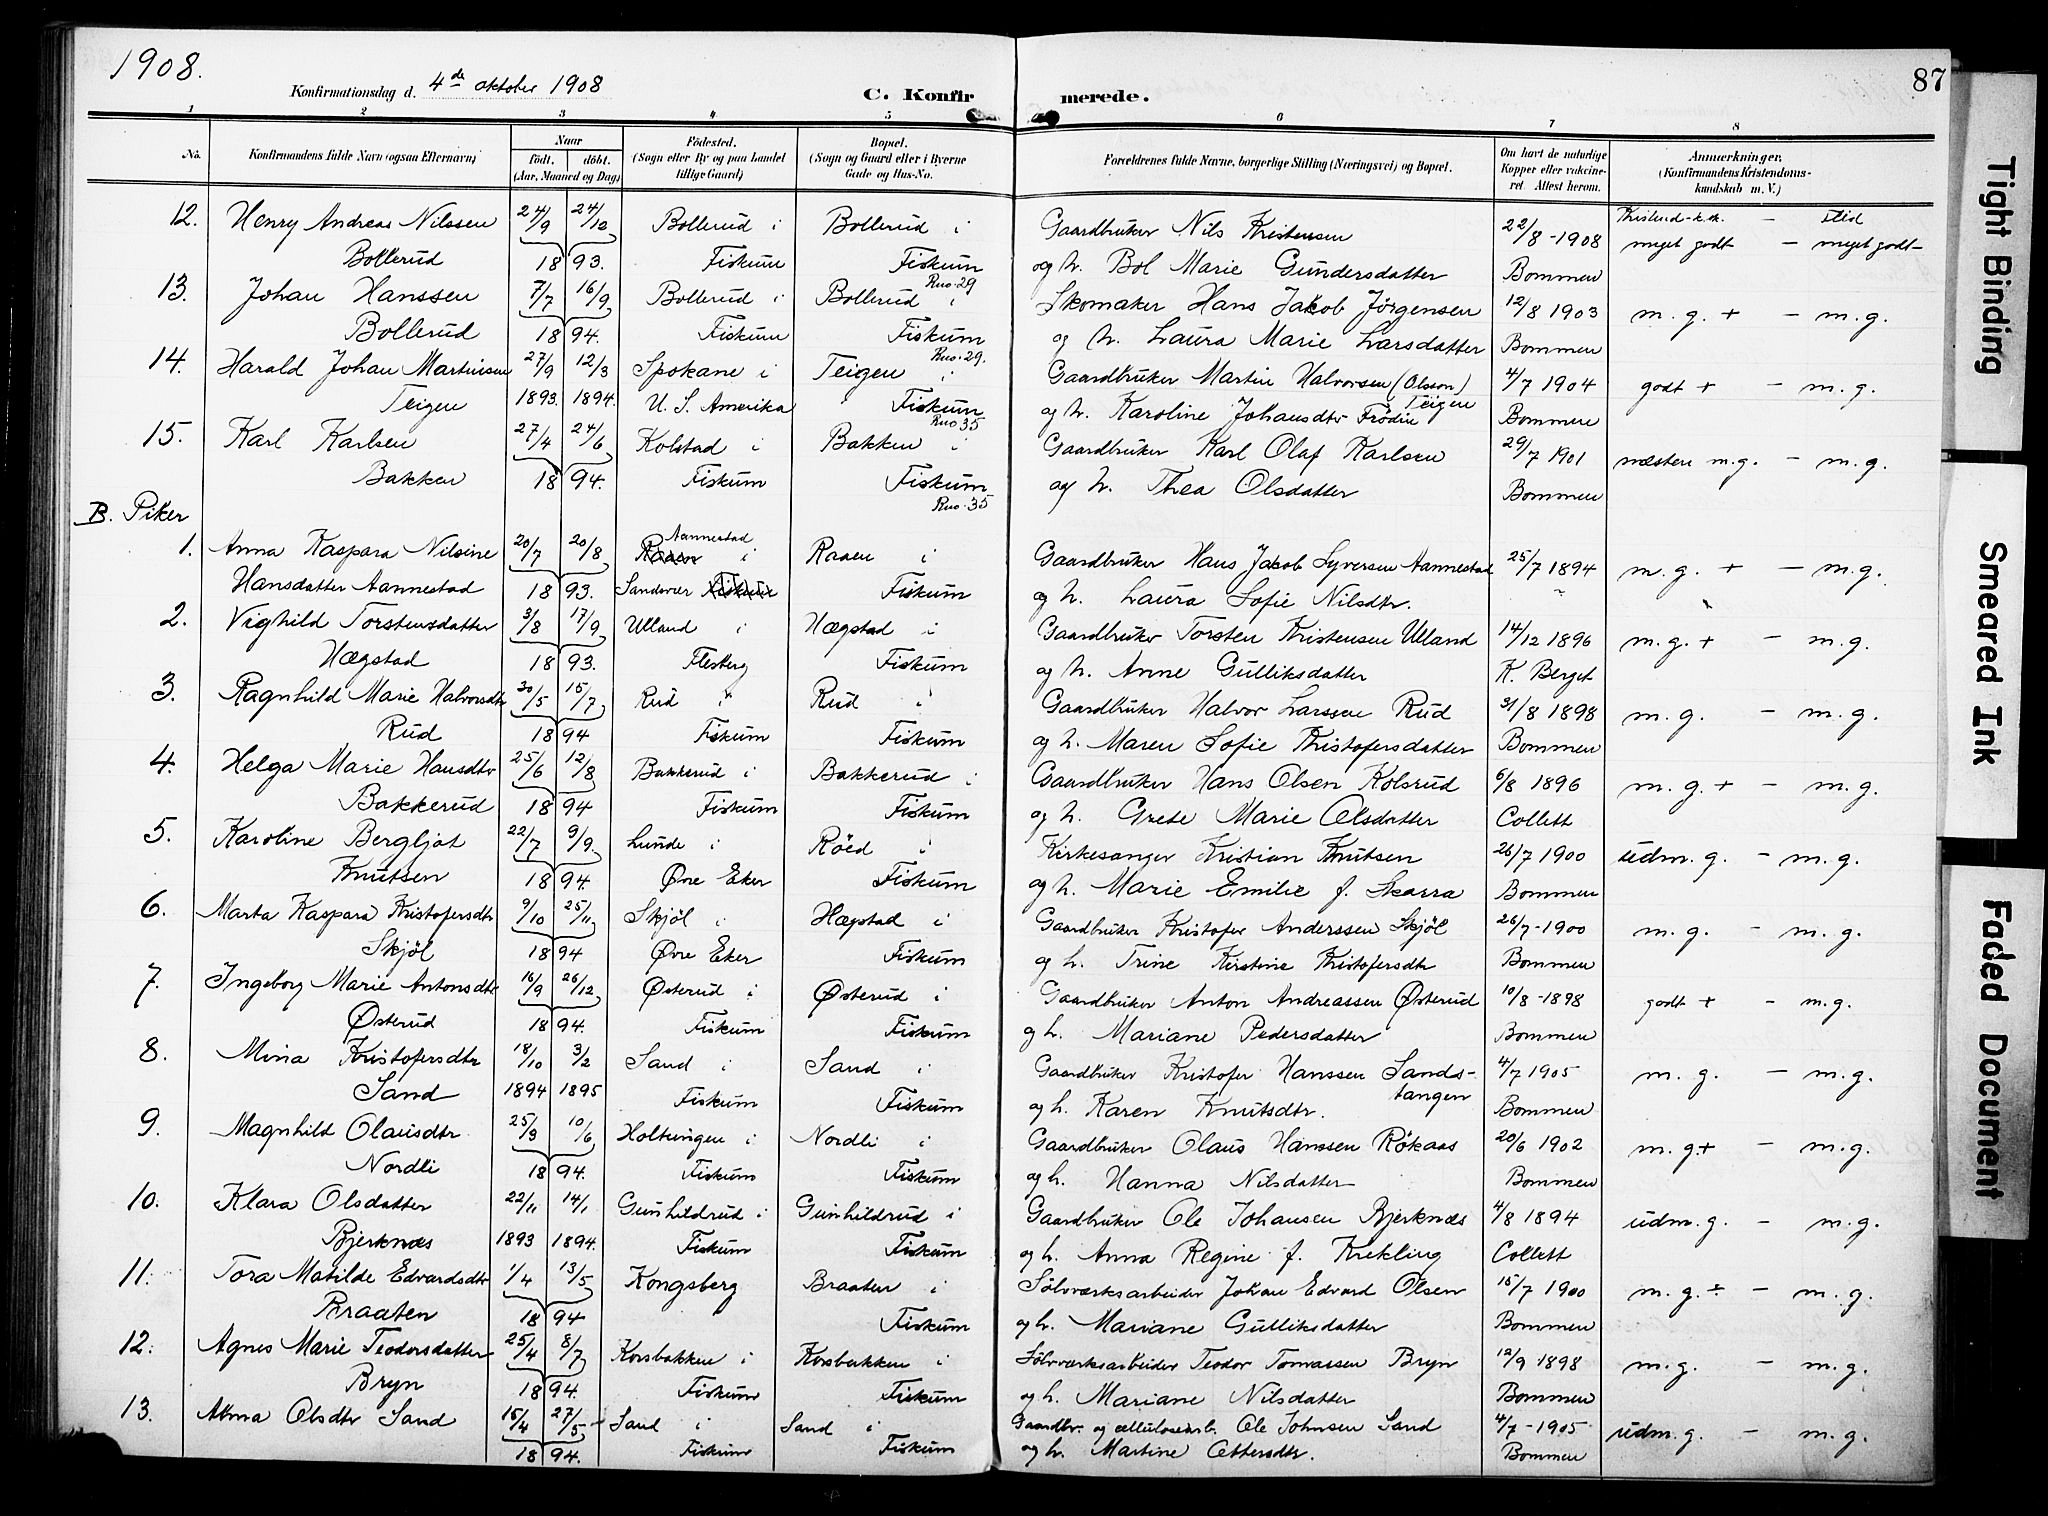 1908.
Konfirmationsdag d. 4de oktober 1908
C. Konfirmerede.
87
1 2 3 4 5 6 7 8
No. Konfirmandens fulde Navn (ogsaa Efternavn) Naar født, døbt. (Aar, Maaned og Dag) Födested. (Sogn eller By og paa Landet tillige Gaard) Bopæl. (Sogn og Gaard eller i Byerne Gade og Hus-No. Forældrenes fulde Navne, borgerlige Stilling (Næringsvei) og Bopæl. Om havt de naturlige Kopper eller vakcineret. Attest herom. Anmærkninger. (Konfirmandens Kristendomskundskab m. V.)
12. Henry Andreas Nilssen 24/9 24/12 Bollerud i Bollerud i Gaardbruker Nils Kristensen 22/8-1908 Kristend-k.sk. - flid
meget godt - meget godt
Bollerud 18 93. Fiskum Fiskum Rno. 29 og h. Bol Marie Gundersdatter Bommen
13. Johan Hanssen 7/7 16/9 Bollerud i Bollerud i Skomaker Hans Jakob Jørgensen 12/8 1903 m. g. + - m. g.
Bollerud 18 94. Fiskum Fiskum Rno. 29. og h. Laura Marie Larsdatter Bommen
14. Harald Johan Martinsen 27/9 12/3 Spokane i Teigen i Gaardbruker Martin Halvorsen (Olsson) Teigen 4/7 1904 godt + - m. g.
Teigen 1893. 1894. U. S. Amerika Fiskum Rno 35 og h. Karoline Johansdtr Frödin Bommen
15. Karl Karlsen 27/4 24/6 Kolstad i Bakken i Gaardbruker Karl Olaf Karlsen 29/7 1901 næsten m. g. - m. g.
Bakken 18 94. Fiskum Fiskum Rno. 35 og h. Thea Olsdatter Bommen
B. Piker
1. Anna Kaspara Nilsine 20/7 20/8 Aannestad Raaen i Raaen i Gaardbruker Hans Jakob Syversen Aannestad 25/7 1894 m. g. + - m. g.
Hansdatter Aannestad 18 93. Sandsvær Fiskum Fiskum og h. Laura Sofie Nilsdtr.
2. Vighild Torstensdatter 3/8 17/9 Ulland i Hægstad i Gaardbruker Torsten Kristensen Ulland 14/12 1896 m. g. + - m. g.
Hægstad 18 93. Flesberg Fiskum og h. Anne Gulliksdatter K. Berget
3. Ragnhild Marie Halvorsdtr 30/5 15/7 Rud i Rud i Gaardbruker Halvor Larssen Rud 31/8 1898 m. g. - m. g.
Rud 18 94 Fiskum Fiskum og h. Maren Sofie Kristofersdatter Bommen
4. Helga Marie Hansdtr 25/6 12/8 Bakkerud i Bakkerud i Gaardbruker Hans Olsen Kolsrud 6/8 1896 m. g. + - m. g.
Bakkerud 18 94 Fiskum Fiskum og h. Grete Marie Olsdatter Collett
5. Karoline Bergljot 22/7 9/9. Lunde i Röed i Kirkesanger Kristian Knutsen 26/7 1900 udm. g. - m. g.
Knutsen 18 94. Øvre Eker Fiskum og h. Marie Emilie f. Skarra Bommen
6. Marta Kaspara Kristofersdtr 9/10 25/11 Skjøl i Hægstad i Gaardbruker Kristofer Anderssen Skjøl 26/7-1900 m. g. - m. g.
Skjøl 18 94 Øvre Eker Fiskum og h. Trine Kirstine Kristofersdtr Bommen
7. Ingeborg Marie Antonsdtr 16/9 26/12 Østerud i Østerud i Gaardbruker Anton Andreassen Østerud 10/8-1898 godt + - m. g.
Østerud 18 94. Fiskum Fiskum og h. Mariane Pedersdatter Bommen
8. Mina Kristofersdtr 18/10 3/2 Sand i Sand i Gaardbruker Kristofer Hanssen Sandstangen 4/7 1905 m. g. - m. g.
Sand 1894 1895 Fiskum Fiskum og h. Karen Knutsdtr. Bommen
9. Magnhild Olausdtr 25/3 10/6 Holtungen i Nordli i Gaardbruker Olaus Hanssen Rökaas 20/6 1902 m. g + - m. g.
Nordli 18 94. Fiskum Fiskum og h. Hanna Nilsdatter Bommen
10. Klara Olsdatter 22/11 14/1 Gunhildrud i Gunhildrud i Gaardbruker Ole Johansen Bjerknæs 4/8 1894 udm. g. - m. g.
Bjerknæs 1893 1894. Fiskum Fiskum og h. Anna Regine f. Krekling Collett
11. Tora Matilde Edvardsdtr 1/4 13/5 Kongsberg Braaten i Sølvværksarbeider Johan Edvard Olsen 15/7 1900 m. g. ÷ - m. g.
Braaten 18 94 Fiskum og h. Mariane Gulliksdatter Bommen
12. Agnes Marie Teodorsdatter 25/4 8/7 Korsbakken i Korsbakken i Sølvværksarbeider Teodor Tomassen Bryn 12/9 1898 m. g. - m. g.
Bryn 18 94. Fiskum Fiskum og h. Mariane Nilsdatter Bommen
13. Anna Olsdtr Sand 15/4 27/5 Sand i Sand i Gaardbr. og cellulosearb. Ole Johnsen Sand 4/7-1905 udm. g. - m. g.
18 94. Fiskum Fiskum og h. Martine Ottersdtr. Bommen
Tight Binding
Smeared Ink
Faded Document